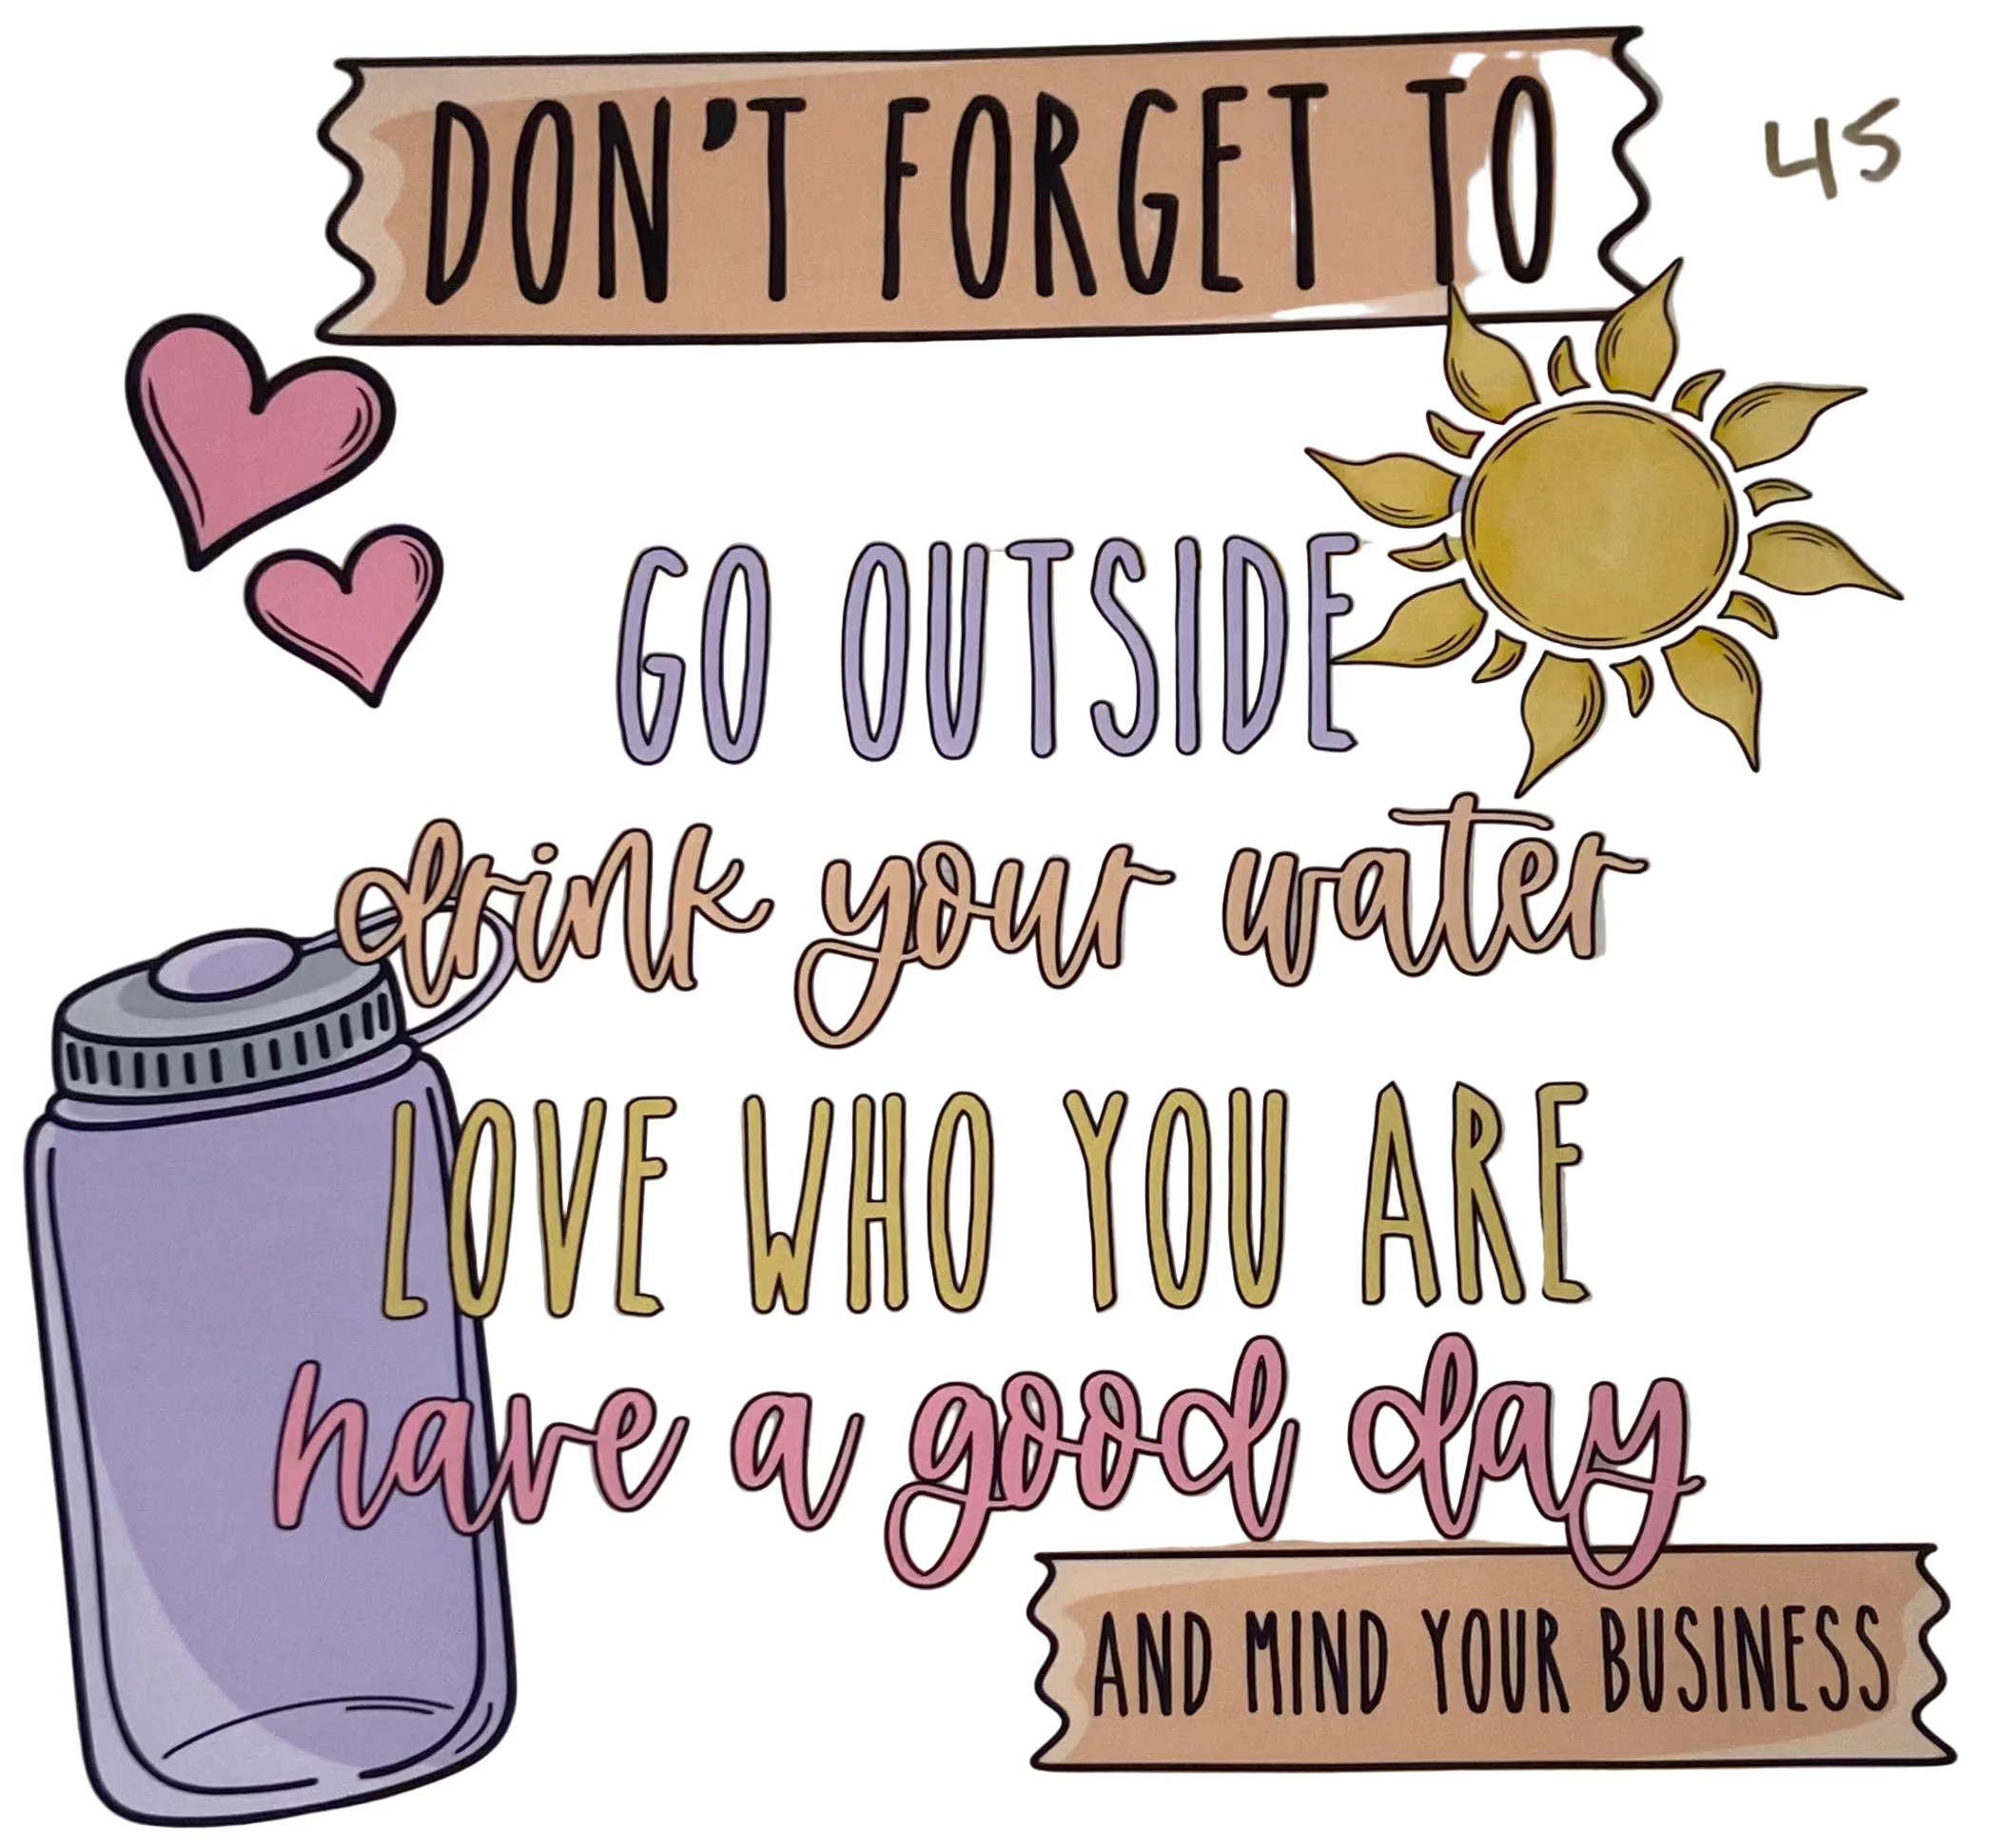 DON'T FORGET TO
45
GO OUTSIDE
drink your water
LOVE WHO YOU ARE
have a good day
AND MIND YOUR BUSINESS